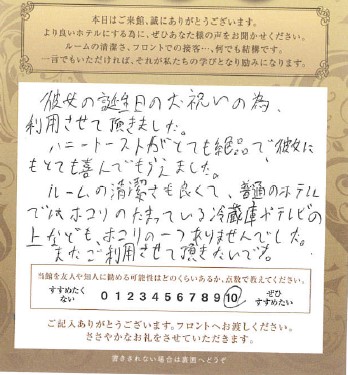 本日はご来館、誠にありがとうございます。
より良いホテルにする為に、ぜひあなた様の声をお聞かせください。
ルームの清潔さ、フロントでの接客…、何でも結構です。
一言でもいただければ、それが私たちの学びとなり励みになります。
彼女の誕生日のお祝いの為、
利用させて頂きました。
ハニートーストがとても絶品で彼女に
もとても喜んでもらえました。
ルームの清潔さも良くて、普通のホテル
ではホコリのたまっている冷蔵庫やテレビの
上なども、ホコリ一つありませんでした。
またご利用させて頂きたいです。
当館を友人や知人に勧める可能性はどのくらいあるか、点数で教えてください。
すすめたくない 0 1 2 3 4 5 6 7 8 9 10 ぜひすすめたい
ご記入ありがとうございます。フロントへお渡しください。
ささやかなお礼をさせていただきます。
書ききれない場合は裏面へどうぞ